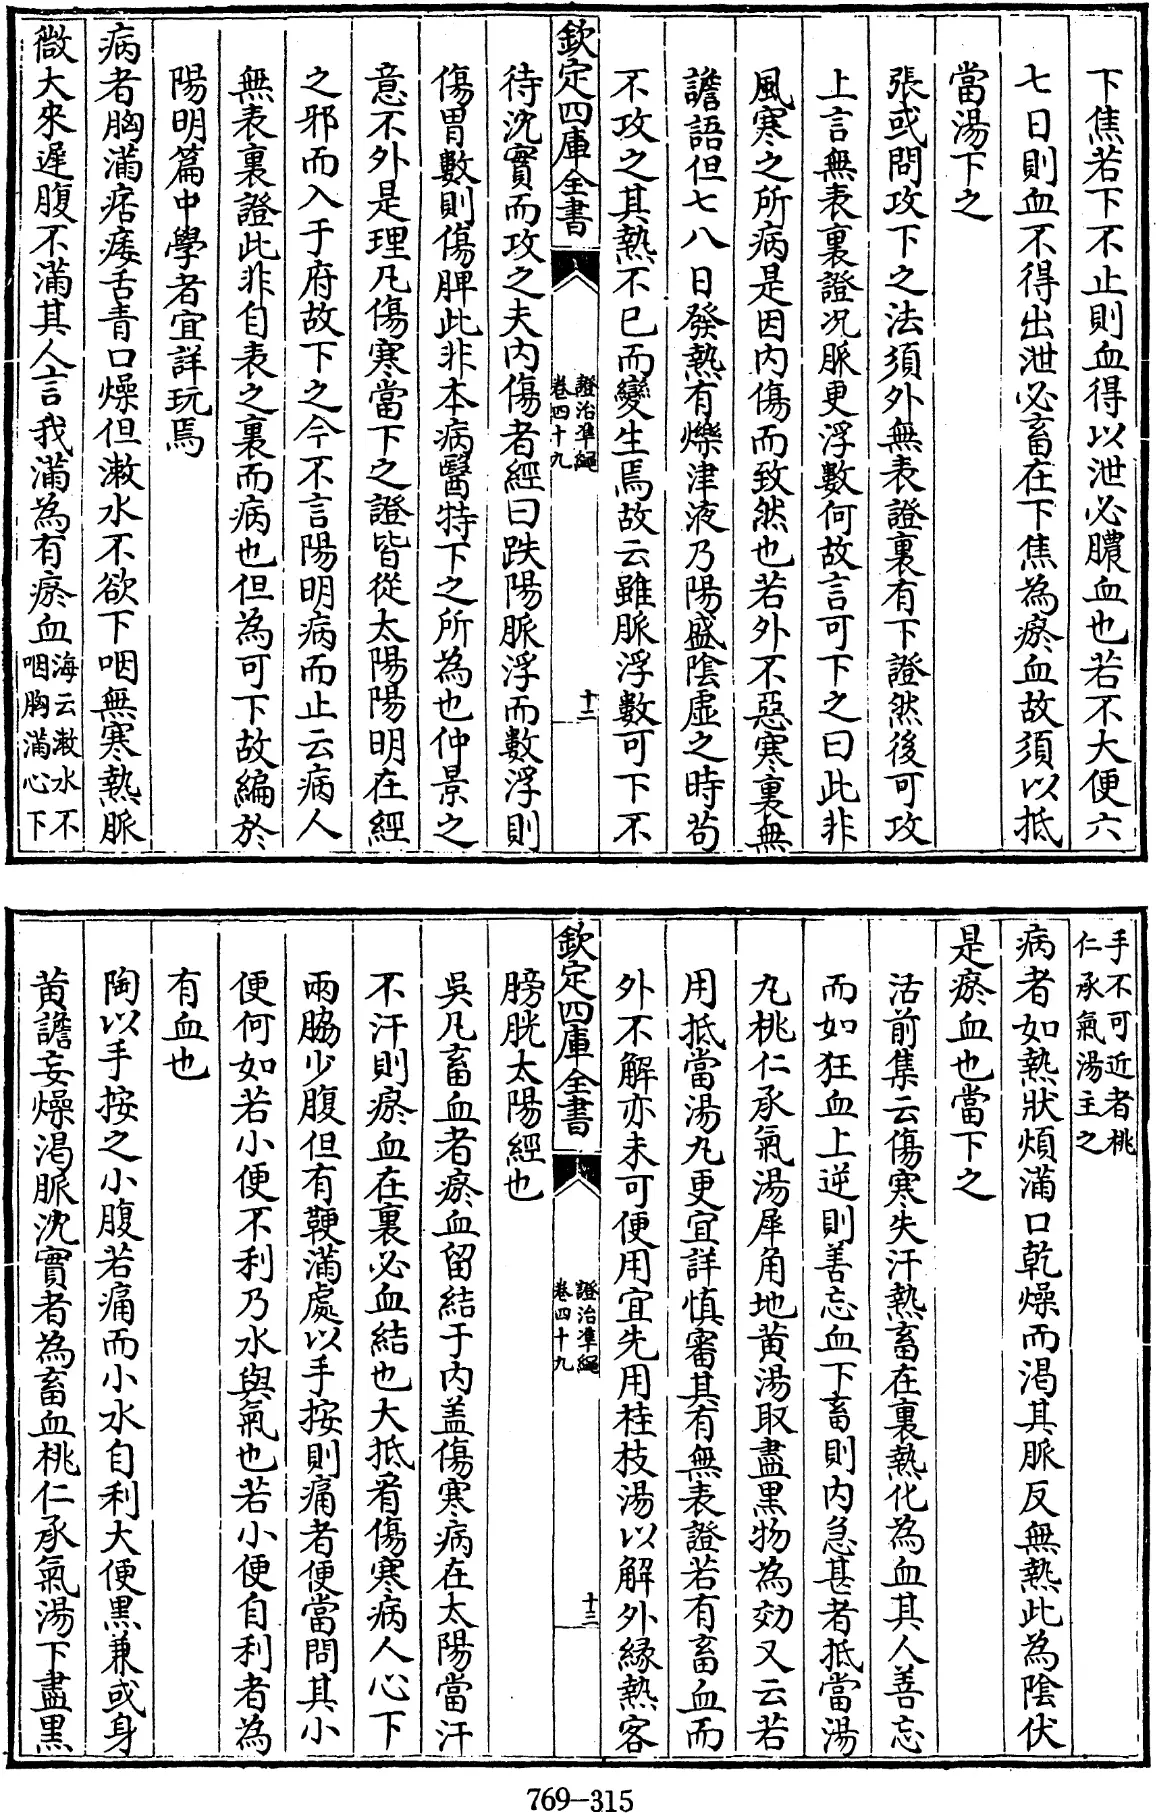 下焦若下不止則血得以泄必膿血也若不大便六
七日則血不得出泄必畜在下焦為瘀血故須以抵
當湯下之
張或問攻下之法須外無表證裏有下證然後可攻
上言無表裏證况脈更浮數何故言可下之曰此非
風寒之所病是因内傷而致然也若外不惡寒裏無
譫語但七八日發熱有爍津液乃陽盛陰虛之時苟
不攻之其熱不已而變生焉故云雖脈浮數可下不
欽定四庫全書
證治凖繩
卷四十九
十二
待沈實而攻之夫内傷者經曰趺陽脈浮而數浮則
傷胃數則傷脾此非本病醫特下之所為也仲景之
意不外是理凡傷寒當下之證皆從太陽陽明在經
之邪而入于府故下之今不言陽明病而止云病人
無表裏證此非自表之裏而病也但為可下故編於
陽明篇中學者宜詳玩焉
病者胸滿痞痿舌青口燥但漱水不欲下咽無寒熱脈
微大來遲腹不滿其人言我滿為有瘀血海云漱水不
咽胸滿心下
手不可近者桃
仁承氣湯主之
病者如熱狀煩滿口乾燥而渴其脈反無熱此為陰伏
是瘀血也當下之
活前集云傷寒失汗熱畜在裏熱化為血其人善忘
而如狂血上逆則善忘血下畜則内急甚者抵當湯
丸桃仁承氣湯犀角地黄湯取盡黒物為効又云若
用抵當湯丸更宜詳慎審其有無表證若有畜血而
外不解亦未可便用宜先用桂枝湯以解外縁熱客
欽定四庫全書
證治凖繩
卷四十九
十三
膀胱太陽經也
吳凡畜血者瘀血留結于内盖傷寒病在太陽當汗
不汗則瘀血在裏必血結也大抵看傷寒病人心下
兩脇少腹但有鞕滿處以手按則痛者便當問其小
便何如若小便不利乃水與氣也若小便自利者為
有血也
陶以手按之小腹若痛而小水自利大便黒兼或身
黄譫妄燥渴脈沈實者為畜血桃仁承氣湯下盡黒
769-315